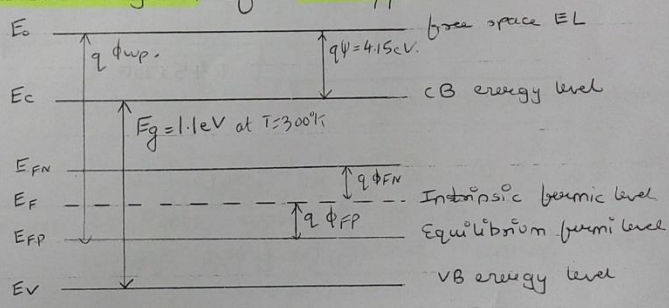 E₀ free space EL
q ϕwp. qψ = 4.15eV.
Ec CB energy level
Eg = 1.1eV at T=300°K
EFN
qϕFN
EF Intrinsic fermic level
qϕFP
EFP Equilibrium fermi level
EV VB energy level